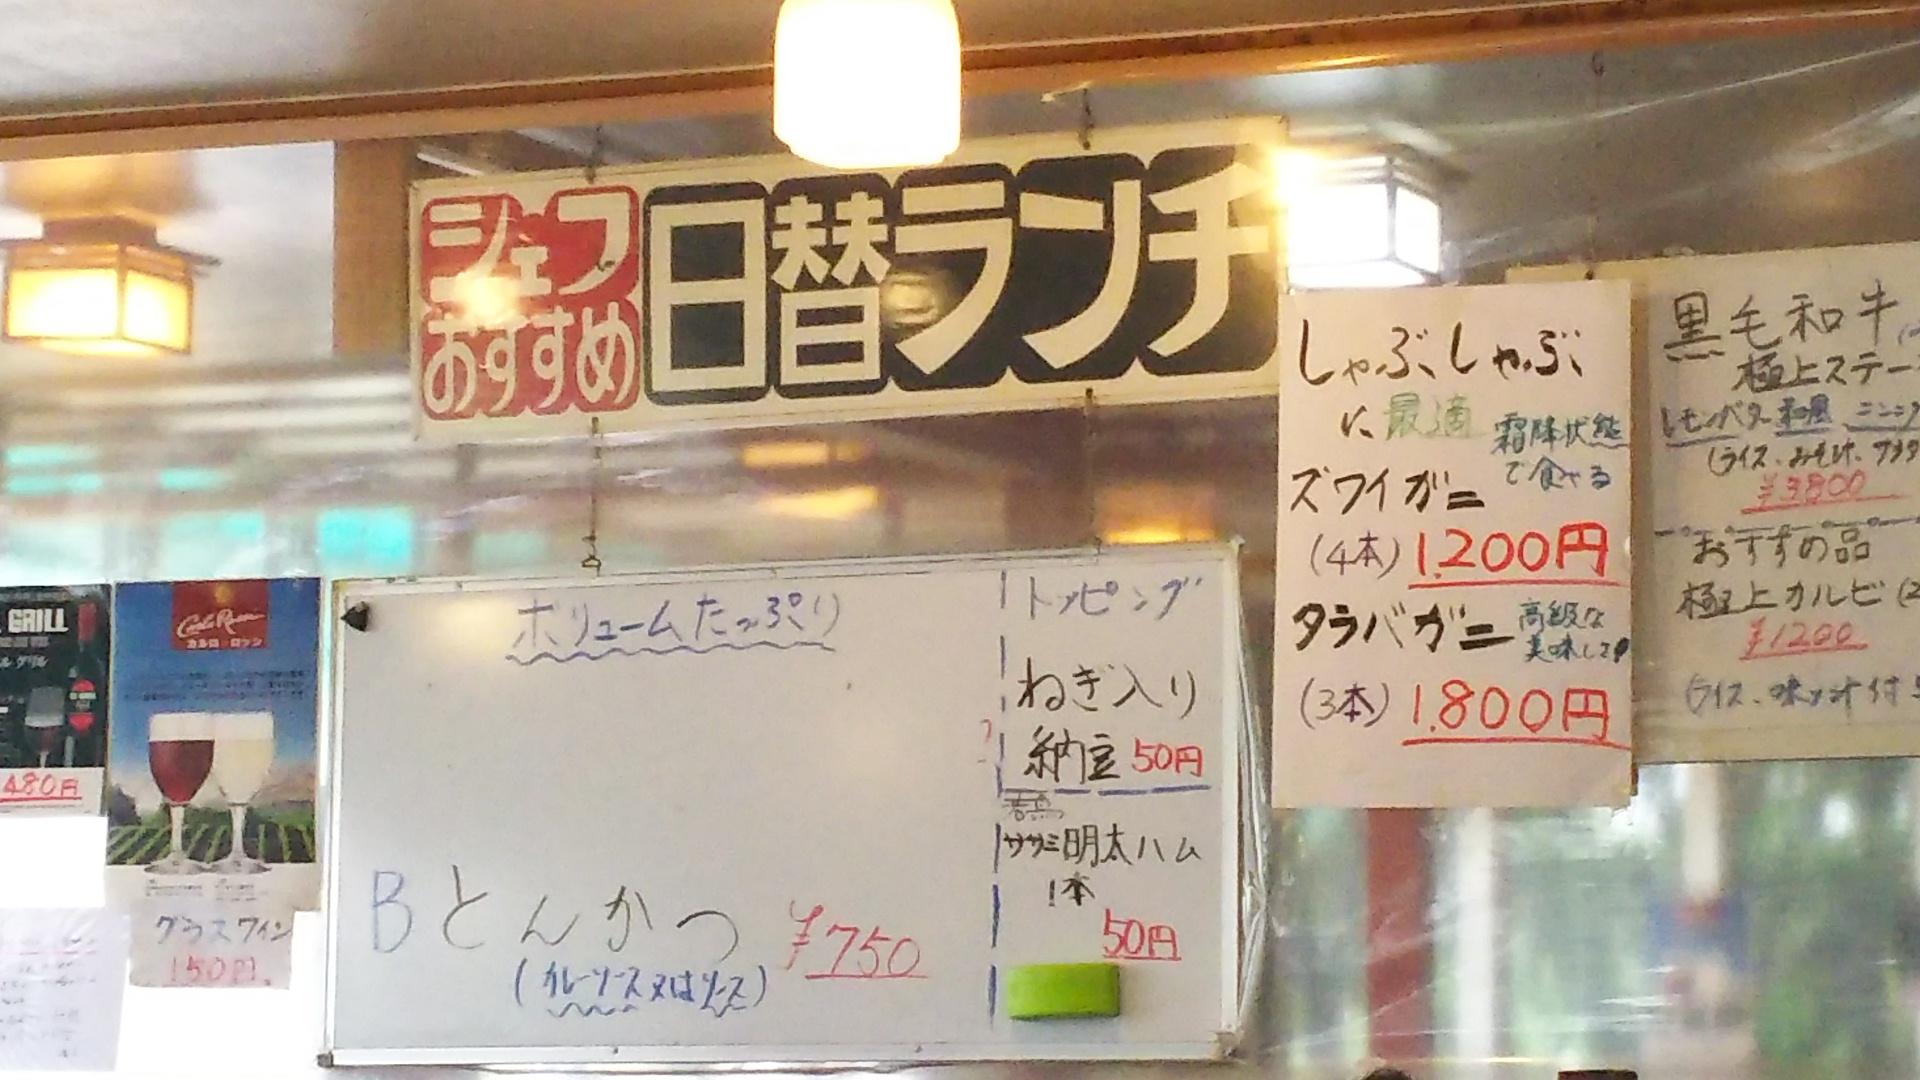 シェフ
おすすめ
日替ランチ
GRILL
480円
Carlo Rossi
カルロ ロッシ
グラスワイン
150円
ボリュームたっぷり
Bとんかつ ¥750
(カレーソース又はソース)
トッピング
ねぎ入り
納豆 50円
ササミ明太ハム
1本
50円
しゃぶしゃぶ
に最適
霜降状態
で食べる
ズワイガニ
(4本) 1.200円
タラバガニ
高級な
(3本) 1.800円
黒毛和牛
極上ステー
レモンバター 和風
¥3800
おすすめ品
極上カルビ
¥1200